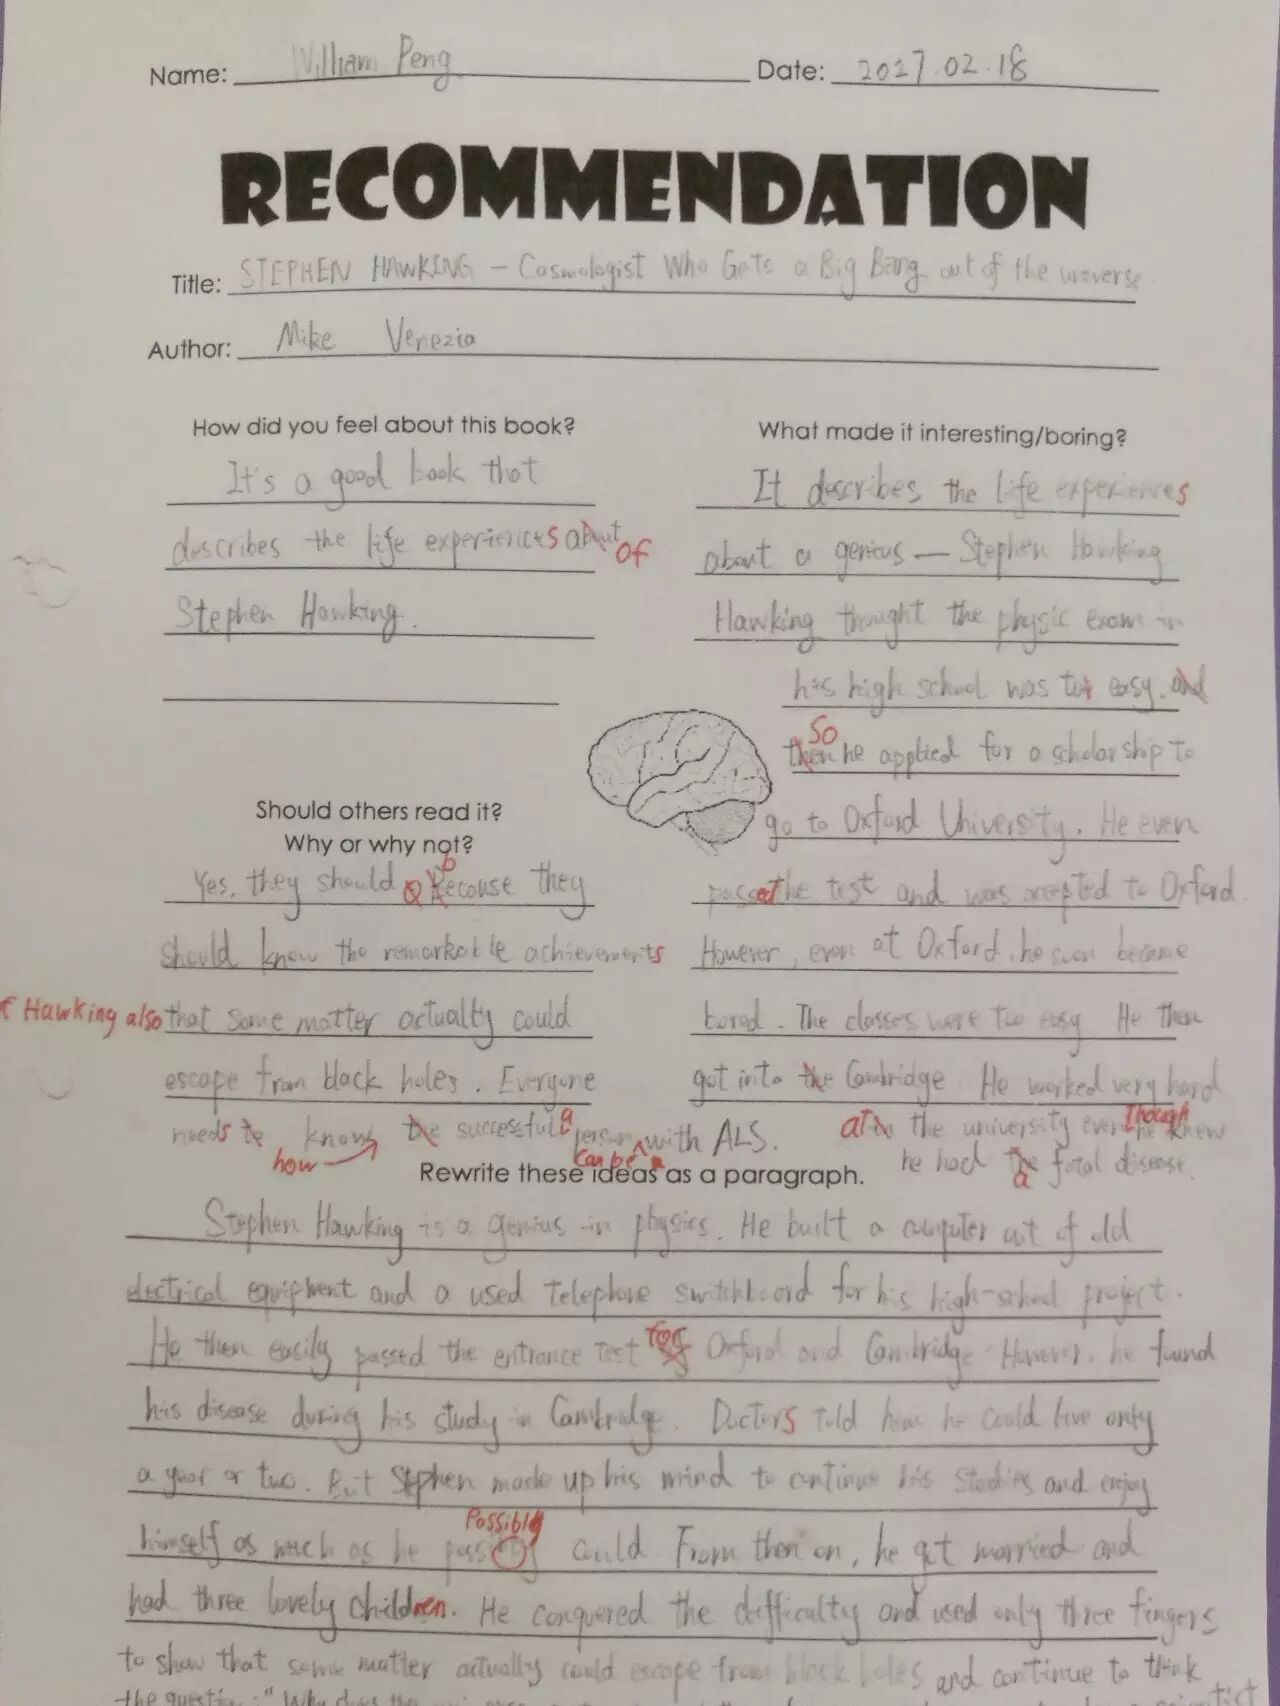 Name: William Peng Date: 2027.02.18
RECOMMENDATION
Title: STEPHEN HAWKING – Cosmologist Who Gets a Big Bang out of the universe
Author: Mike Venezia
How did you feel about this book?
It's a good book that
describes the life experiences about of
Stephen Hawking.
What made it interesting/boring?
It describes the life experiences
about a genius — Stephen Hawking
Hawking thought the physic exam in
his high school was too easy. and
So
then he applied for a scholarship to
go to Oxford University. He even
passed the test and was accepted to Oxford.
However, even at Oxford, he soon became
bored. The classes were too easy He then
got into the Cambridge. He worked very hard
at in the university even though he knew
he had the a fatal disease.
Should others read it?
Why or why not?
Yes, they should b because they
should know the remarkable achievements
Hawking also that some matter actually could
escape from black holes. Everyone
needs to know how the successful a person can be with ALS.
Rewrite these ideas as a paragraph.
Stephen Hawking is a genius in physics. He built a computer out of old
electrical equipment and a used telephone switchboard for his high-school project.
He then easily passed the entrance test for Oxford and Cambridge. However, he found
his disease during his study in Cambridge. Doctors told him he could live only
a year or two. But Stephen made up his mind to continue his studies and enjoy
Possibly
himself as much as he could From then on, he got married and
had three lovely children. He conquered the difficulty and used only three fingers
to show that some matter actually could escape from black holes and continue to think
the question: "Why does the